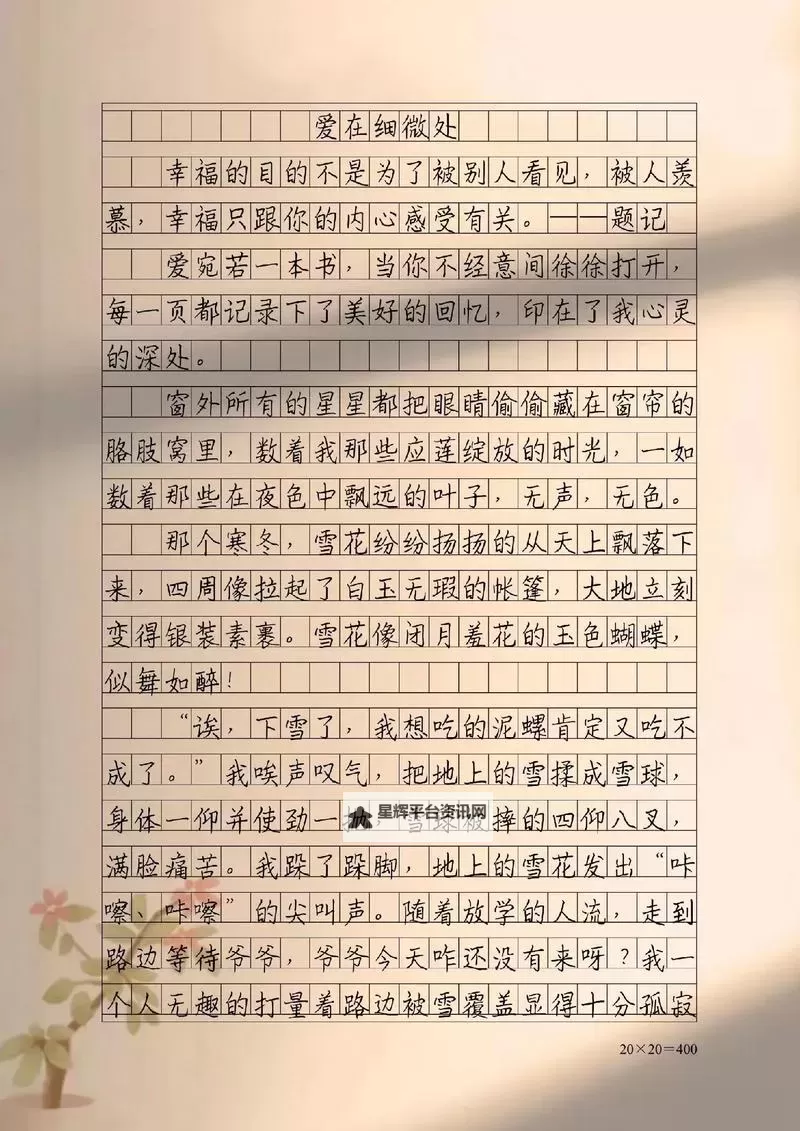 爱在细微处
幸福的目的不是为了被别人看见，被人羡
慕，幸福只跟你的内心感受有关。——题记
爱宛若一本书，当你不经意间徐徐打开，
每一页都记录下了美好的回忆，印在了我心灵
的深处。
窗外所有的星星都把眼睛偷偷藏在窗帘的
胳肢窝里，数着我那些应莲绽放的时光，一如
数着那些在夜色中飘远的叶子，无声，无色。
那个寒冬，雪花纷纷扬扬的从天上飘落下
来，四周像拉起了白玉无瑕的帐篷，大地立刻
变得银装素裹。雪花像闭月羞花的玉色蝴蝶，
似舞如醉！
“诶，下雪了，我想吃的泥螺肯定又吃不
成了。”我唉声叹气，把地上的雪揉成雪球，
身体一仰并使劲一抛，雪球被摔的四仰八叉，
星辉平台资讯网
满脸痛苦。我跺了跺脚，地上的雪花发出“咔
嚓、咔嚓”的尖叫声。随着放学的人流，走到
路边等待爷爷，爷爷今天咋还没有来呀？我一
个人无趣的打量着路边被雪覆盖显得十分孤寂
20×20=400